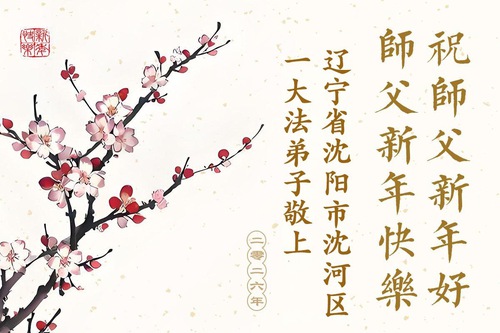 祝師父新年好
師父新年快樂
辽宁省沈阳市沈河区
一大法弟子敬上
二零二六年
新年
快樂